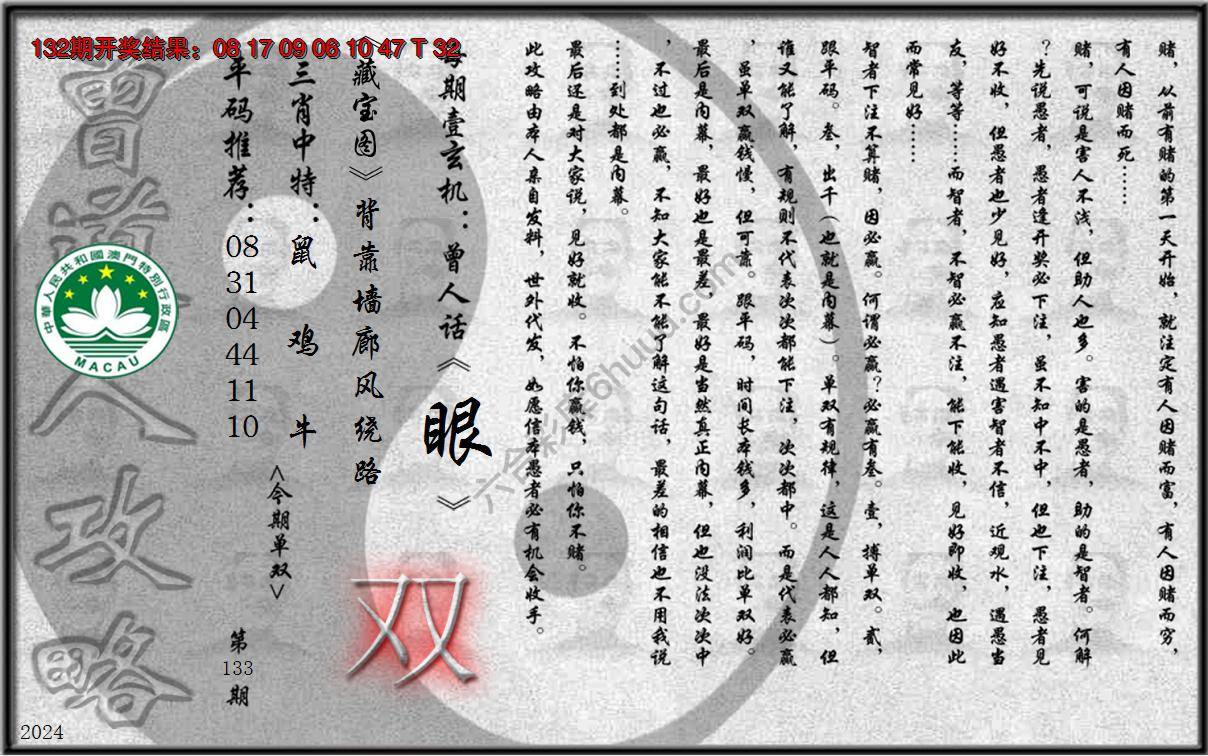 132期开奖结果：08 17 09 06 10 47 T 32
赌，从前有赌的第一天开始，就注定有人因赌而富，有人因赌而穷，
有人因赌而死……
赌，可说是害人不浅，但助人也多。害的是愚者，助的是智者。何解
？先说愚者，愚者逢开奖必下注，虽不知中不中，但也下注，愚者见
好不收，但愚者也少见好，应知愚者遇害智者不信，近观水，遇愚当
友，等等……而智者，不智必赢不注，能下能收，见好即收，也因此
而常见好……
智者下注不算赌，因必赢。何谓必赢？必赢有叁。壹，搏单双。贰，
跟平码。叁，出千（也就是内幕）。单双有规律，这是人人都知，但
谁又能了解，有规则不代表次次都能下注，次次都中。而是代表必赢
，虽单双赢钱慢，但可靠。跟平码，时间长本钱多，利润比单双好。
最后是内幕，最好也是最差。最好是当然真正内幕，但也没法次次中
，不过也必赢，不知大家能不能了解这句话，最差的相信也不用我说
……到处都是内幕。
最后还是对大家说，见好就收。不怕你赢钱，只怕你不赌。
此攻略由本人亲自发料，世外代发，如愿信本愚者必有机会收手。
每期壹玄机：曾人话《眼》
《藏宝图》背靠墙廊风绕路
双
三肖中特：鼠 鸡 牛
<今期单双>
平码推荐：
08
31
04
44
11
10
第
133
期
曾道人攻略
中華人民共和國澳門特別行政區
MACAU
2024